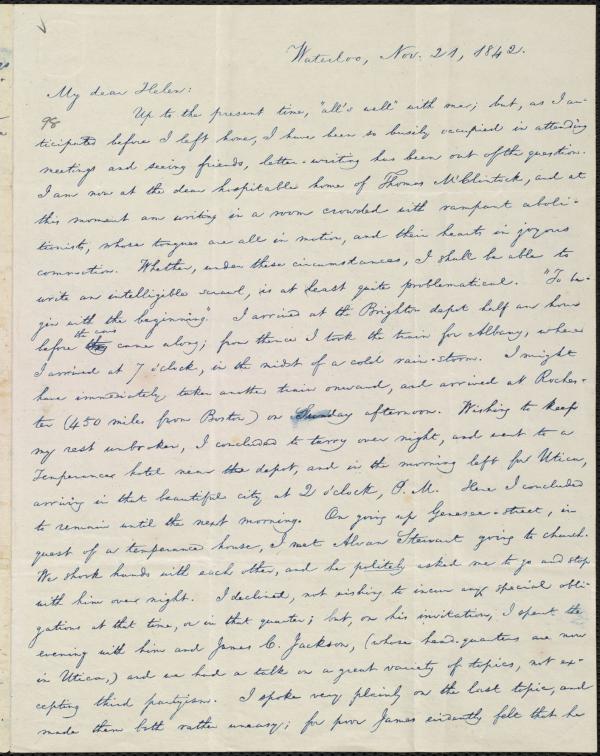 Waterloo, Nov. 21, 1842.
My dear Helen:
98
Up to the present time, "all's well" with me; but, as I an-
ticipated before I left home, I have been so busily occupied in attending
meetings and seeing friends, letter-writing has been out of the question.
I am now at the dear hospitable home of Thomas M'Clintock, and at
this moment am writing in a room crowded with rampant aboli-
tionists, whose tongues are all in motion, and their hearts in joyous
commotion. Whether, under these circumstances, I shall be able to
write an intelligible scrawl, is at least quite problematical. "To be-
gin with the beginning." I arrived at the Brighton depot half an hour
the cars
before came along; from thence I took the train for Albany, where
I arrived at 7 o'clock, in the midst of a cold rain-storm. I might
have immediately taken another train onward, and arrived at Roches-
ter (450 miles from Boston) on Sunday afternoon. Wishing to keep
my rest unbroken, I concluded to tarry over night, and went to a
Temperance hotel near the depot, and in the morning left for Utica,
arriving in that beautiful city at 2 o'clock, P. M. Here I concluded
to remain until the next morning. On going up Genesee-street, in
quest of a temperance house, I met Alvan Stewart going to church.
We shook hands with each other, and he politely asked me to go and stop
with him over night. I declined, not wishing to incur any special obli-
gations at that time, or in that quarter; but, on his invitation, I spent the
evening with him and James C. Jackson, (whose head-quarters are now
in Utica,) and we had a talk on a great variety of topics, not ex-
cepting third partyism. I spoke very plainly on the last topic, and
made them both rather uneasy; for poor James evidently felt that he